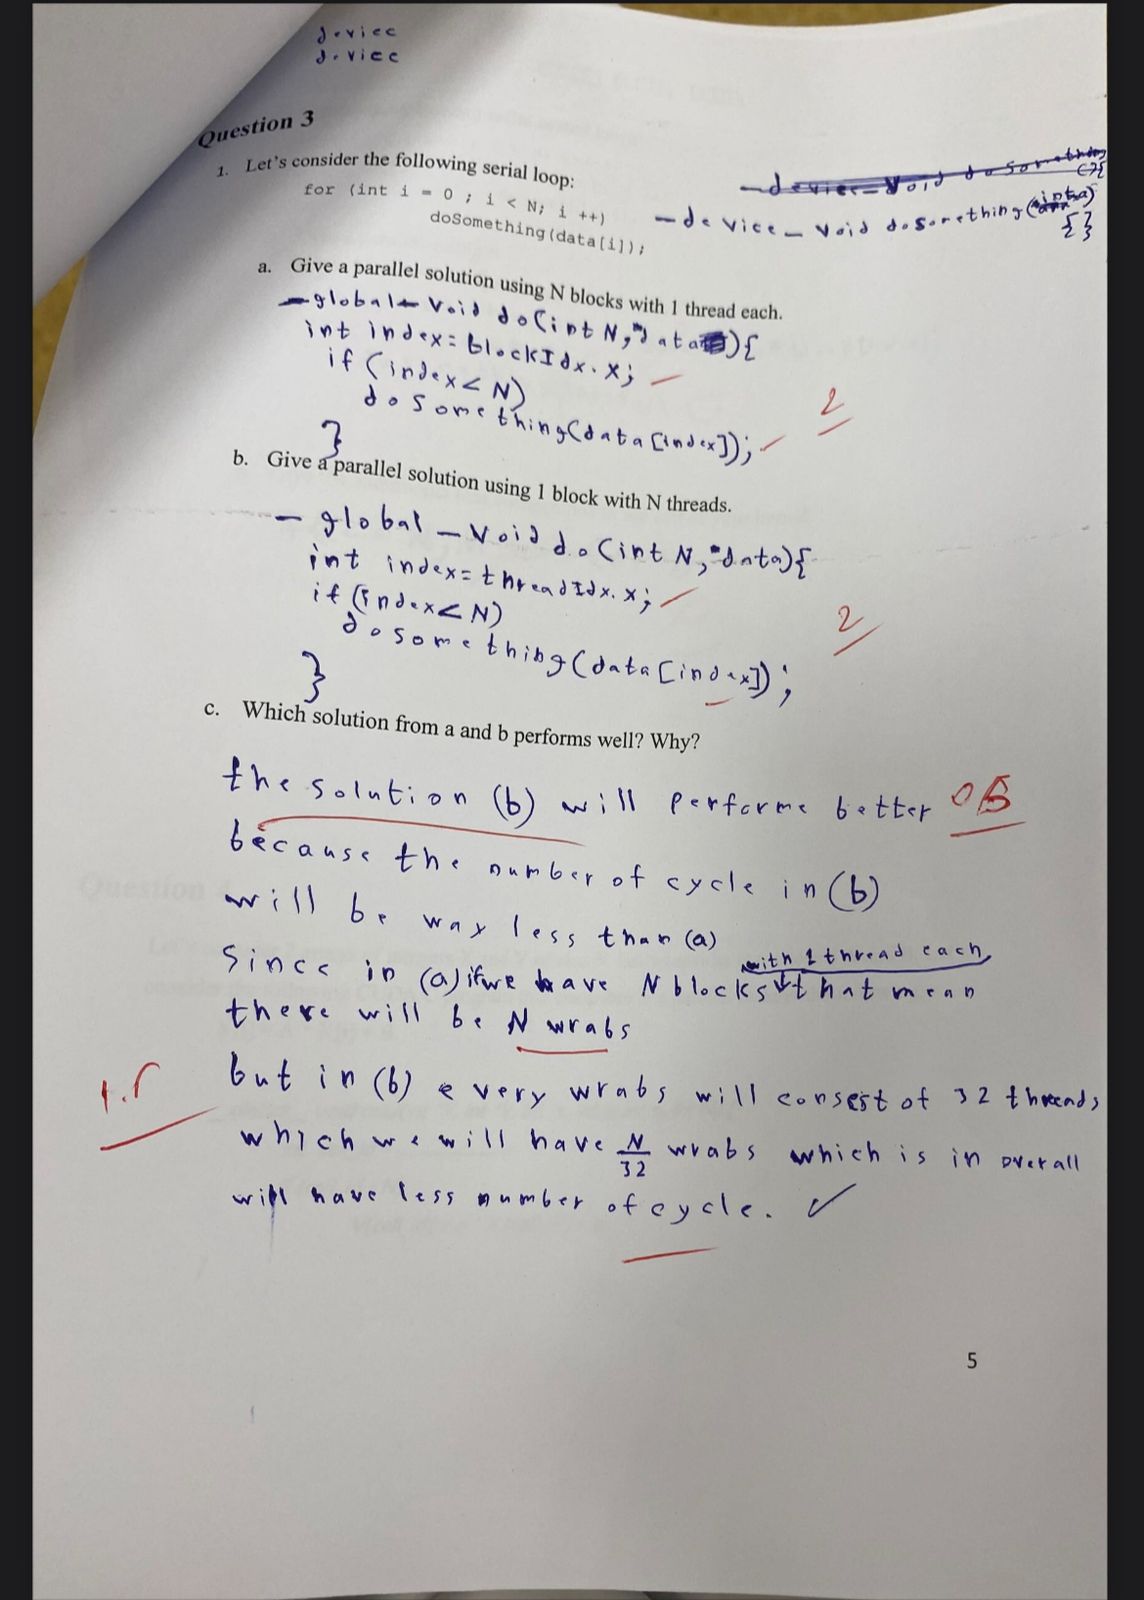 device
device
Question 3
1. Let's consider the following serial loop:
for (int i = 0 ; i < N; i ++)
doSomething(data[i]);
_device_void dosomething
(){
_device_void dosomething(int a)
{}
a. Give a parallel solution using N blocks with 1 thread each.
_global_void do(int N, *data){
int index=blockIdx.x;
if (index<N)
dosomething(data[index]);
}
2
b. Give a parallel solution using 1 block with N threads.
_global_void do(int N, *data){
int index=threadIdx.x;
if (index<N)
dosomething(data[index]);
}
2
c. Which solution from a and b performs well? Why?
the solution (b) will performe better
because the number of cycle in (b)
will be way less than (a)
with 1 thread each
Since in (a) if we have N blocks that mean
there will be N wrabs
but in (b) every wrabs will consest of 32 threads
which we will have N/32 wrabs which is in overall
will have less number of cycle.
5